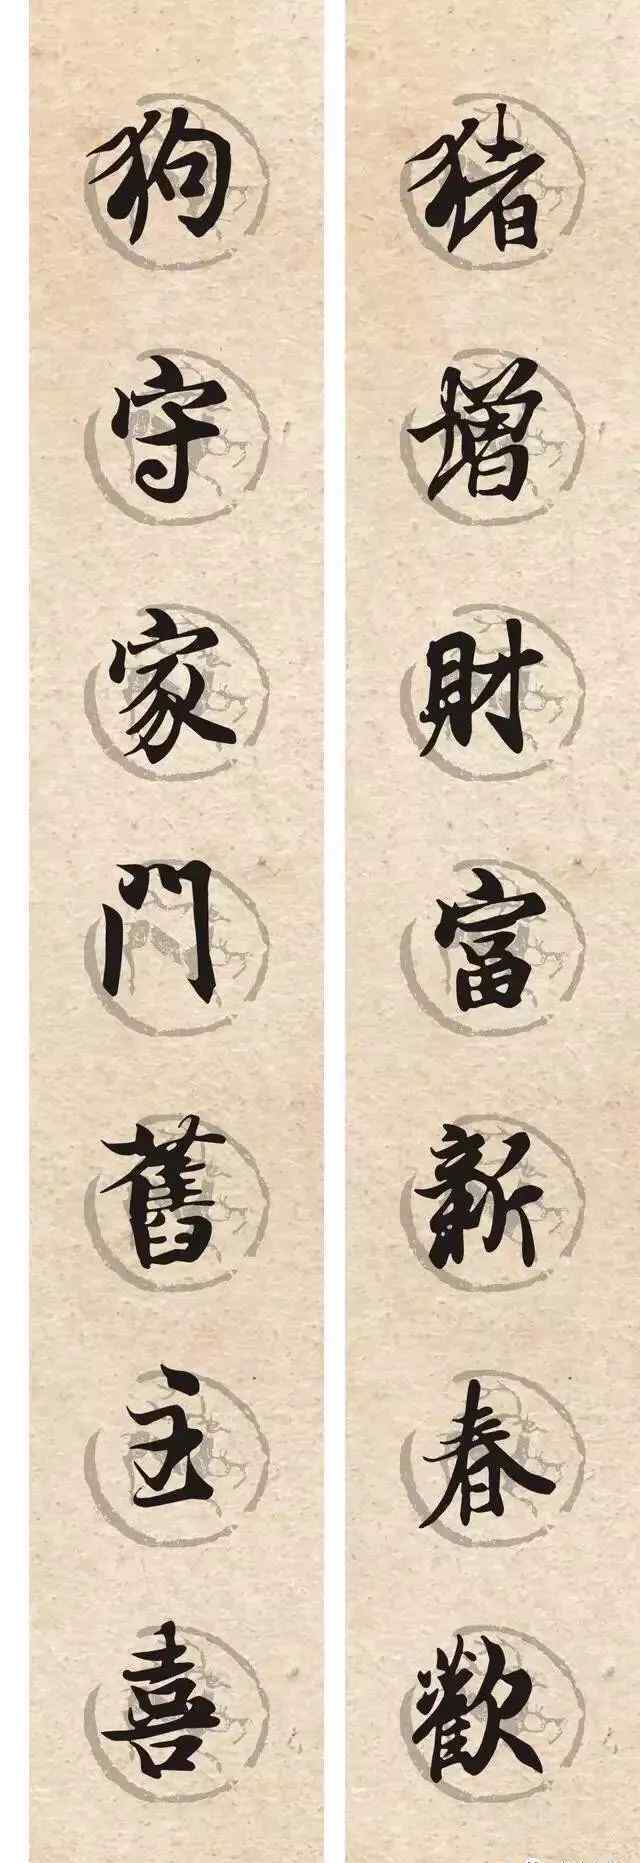 狗守家門舊主喜
猪增財富新春歡